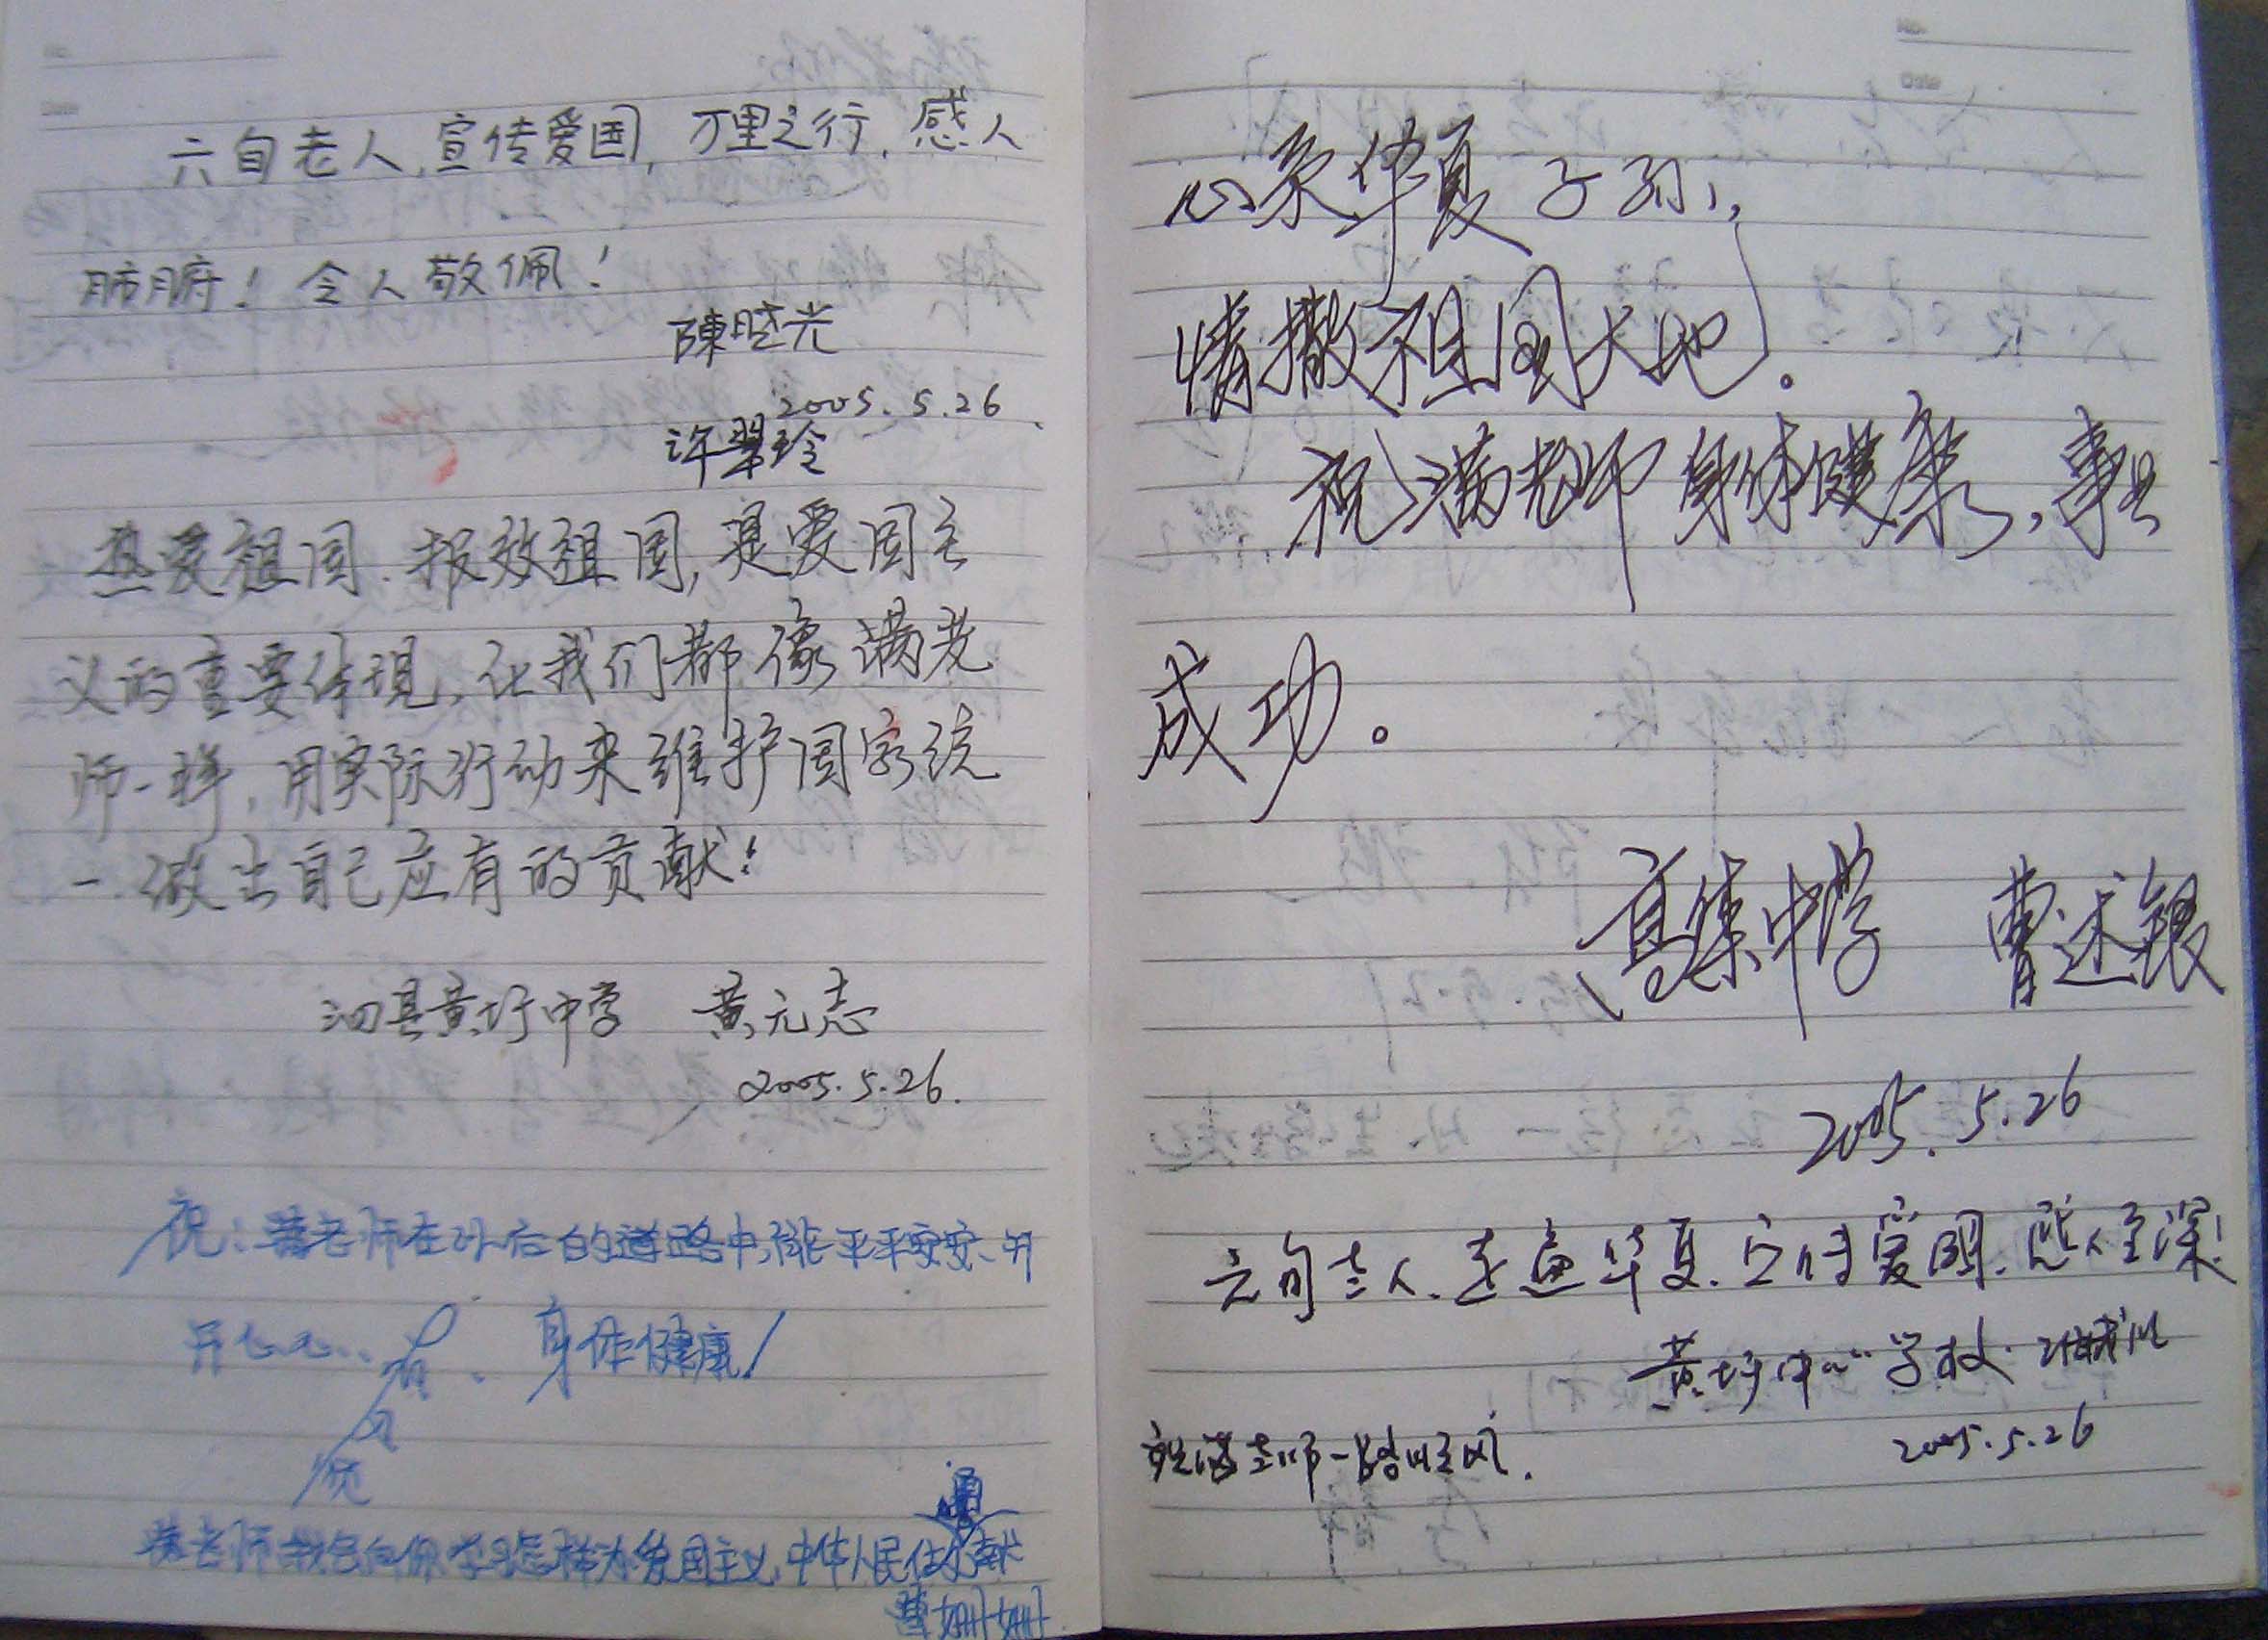 六旬老人,宣传爱国,万里之行,感人
肺腑!令人敬佩!
陳晓光
2005.5.26
许翠玲
热爱祖国.报效祖国,是爱国主
义的重要体现,让我们都像满老
师一样,用实际行动来维护国家统
一.做出自己应有的贡献!
泗县黄圩中学 黄元志
2005.5.26.
祝:满老师在以后的道路中,能平平安安、开
开心心、 身体健康!
满老师我会向你学习怎样为爱国主义,中华人民
曹姗姗
心系华夏子孙,
情撒祖国大地。
祝满老师身体健康,事业
成功。
高集中学 曹述银
2005.5.26
六旬老人.走遍华夏.宣传爱国.感人至深!
黄圩中心学校.
2005.5.26
祝满老师一路顺风.